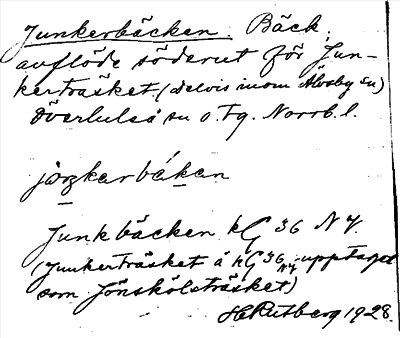 Junkerbäcken. Bäck,
avflöde söderut för Jun-
kerträsket. (delvis inom Älvsby sn)
Överluleå sn o. Tg. Norrb. l.
Junkbäcken kG 36 NV.
(Junkerträsket å kG 36 NV upptaget
som Jönskölsträsket)
H. Rutberg 1928.